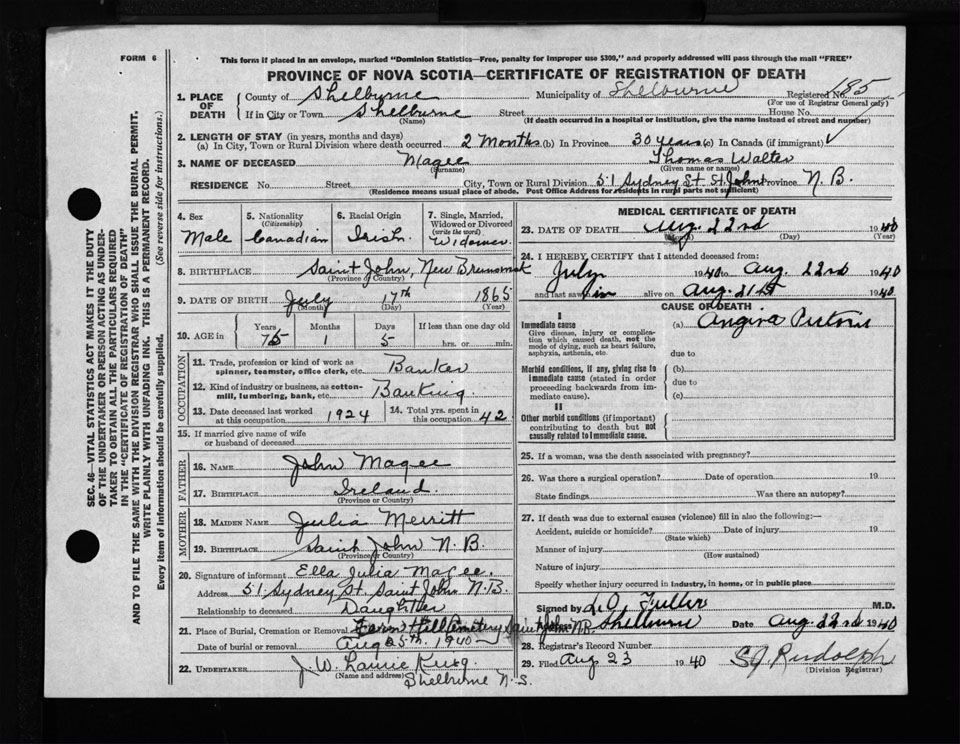 FORM 6
This form if placed in an envelope, marked "Dominion Statistics—Free, penalty for improper use $300," and properly addressed will pass through the mail "FREE"
PROVINCE OF NOVA SCOTIA—CERTIFICATE OF REGISTRATION OF DEATH
SEC. 46—VITAL STATISTICS ACT MAKES IT THE DUTY
OF THE UNDERTAKER OR PERSON ACTING AS UNDER-
TAKER TO OBTAIN ALL THE PARTICULARS REQUIRED
IN THE "CERTIFICATE OF REGISTRATION OF DEATH"
AND TO FILE THE SAME WITH THE DIVISION REGISTRAR WHO SHALL ISSUE THE BURIAL PERMIT.
WRITE PLAINLY WITH UNFADING INK. THIS IS A PERMANENT RECORD.
Every item of information should be carefully supplied. (See reverse side for instructions.)
1. PLACE OF DEATH
County of Shelburne Municipality of Shelburne Registered No. 185
(For use of Registrar General only)
If in City or Town Shelburne Street House No.
(Name) (If death occurred in a hospital or institution, give the name instead of street and number)
2. LENGTH OF STAY (in years, months and days)
(a) In City, Town or Rural Division where death occurred 2 Months (b) In Province 30 years (c) In Canada (if immigrant)
3. NAME OF DECEASED Magee Thomas Walter
(Surname) (Given name or names)
RESIDENCE No. Street City, Town or Rural Division 51 Sydney St. St. John Province N.B.
(Residence means usual place of abode. Post Office Address for residents in rural parts not sufficient)
4. Sex
Male
5. Nationality
(Citizenship)
Canadian
6. Racial Origin
Irish
7. Single, Married,
Widowed or Divorced
(write the word)
Widower
8. BIRTHPLACE Saint John, New Brunswick
(Province or Country)
9. DATE OF BIRTH July 17th 1865
(Month) (Day) (Year)
10. AGE in Years 75 Months 1 Days 5 If less than one day old
hrs. or min.
OCCUPATION
11. Trade, profession or kind of work as
spinner, teamster, office clerk, etc. Banker
12. Kind of industry or business, as cotton-
mill, lumbering, bank, etc. Banking
13. Date deceased last worked
at this occupation 1924
14. Total yrs. spent in
this occupation 42
15. If married give name of wife
or husband of deceased
FATHER
16. NAME John Magee
17. BIRTHPLACE Ireland
(Province or Country)
MOTHER
18. MAIDEN NAME Julia Merritt
19. BIRTHPLACE Saint John N.B.
(Province or Country)
20. Signature of informant Ella Julia Magee.
Address 51 Sydney St. Saint John N.B.
Relationship to deceased Daughter
21. Place of Burial, Cremation or Removal Fern Hill Cemetery Saint John N.B.
Date of burial or removal Aug 25th. 1940
22. UNDERTAKER J. W. Laurie
(Name and address)
Shelburne N.S.
MEDICAL CERTIFICATE OF DEATH
23. DATE OF DEATH Aug. 22nd 1940
(Month) (Day)
24. I HEREBY CERTIFY that I attended deceased from:
July 1940 to Aug. 22nd 1940
and last saw him alive on Aug. 21st 1940
CAUSE OF DEATH
I
Immediate cause
Give disease, injury or complica-
tion which caused death, not the
mode of dying, such as heart failure,
asphyxia, asthenia, etc.
(a) Angina Pectoris
due to
Morbid conditions, if any, giving rise to
immediate cause (stated in order
proceeding backwards from im-
mediate cause).
(b)
due to
(c)
II
Other morbid conditions (if important)
contributing to death but not
causally related to immediate cause.
25. If a woman, was the death associated with pregnancy?
26. Was there a surgical operation? Date of operation 19
State findings Was there an autopsy?
27. If death was due to external causes (violence) fill in also the following:—
Accident, suicide or homicide? Date of injury 19
(State which)
Manner of injury
(How sustained)
Nature of injury
Specify whether injury occurred in industry, in home, or in public place
Signed by L.O. Fuller M.D.
Address Shelburne Date Aug. 22nd 1940
28. Registrar's Record Number
29. Filed Aug 23 1940 Rudolph
(Division Registrar)